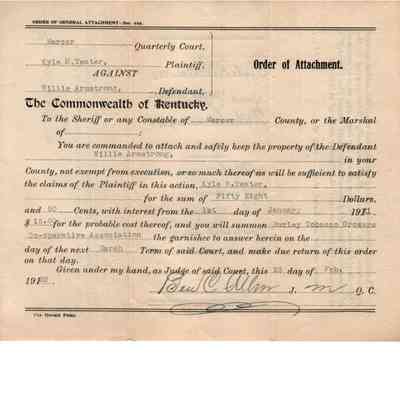 ORDER OF GENERAL ATTACHMENT—Sec.
Mercer Quarterly Court.
Kyle R.Yeater, Plaintiff,
Order of Attachment.
AGAINST
Willie Armstrong, Defendant,
The Commonwealth of Kentucky,
To the Sheriff or any Constable of Mercer County, or the Marshal
of :
You are commanded to attach and safely keep the property of the Defendant
Willie Armstrong, in your
County, not exempt from execution, or so much thereof as will be sufficient to satisfy
the claims of the Plaintiff in this action, Kyle R.Yeater,
for the sum of Fifty Eight Dollars,
and Cents, with interest from the 1st day of January 19
$ 15.00 for the probable cost thereof, and you will summon Burley Tobacco Growers
Co-operative Association the garnishee to answer herein on the
day of the next March Term of said Court, and make due return of this order
on that day.
Given under my hand, as Judge of said Court, this day of Feb.
19
Ben C. J. m Q. C.
The Herald Print.